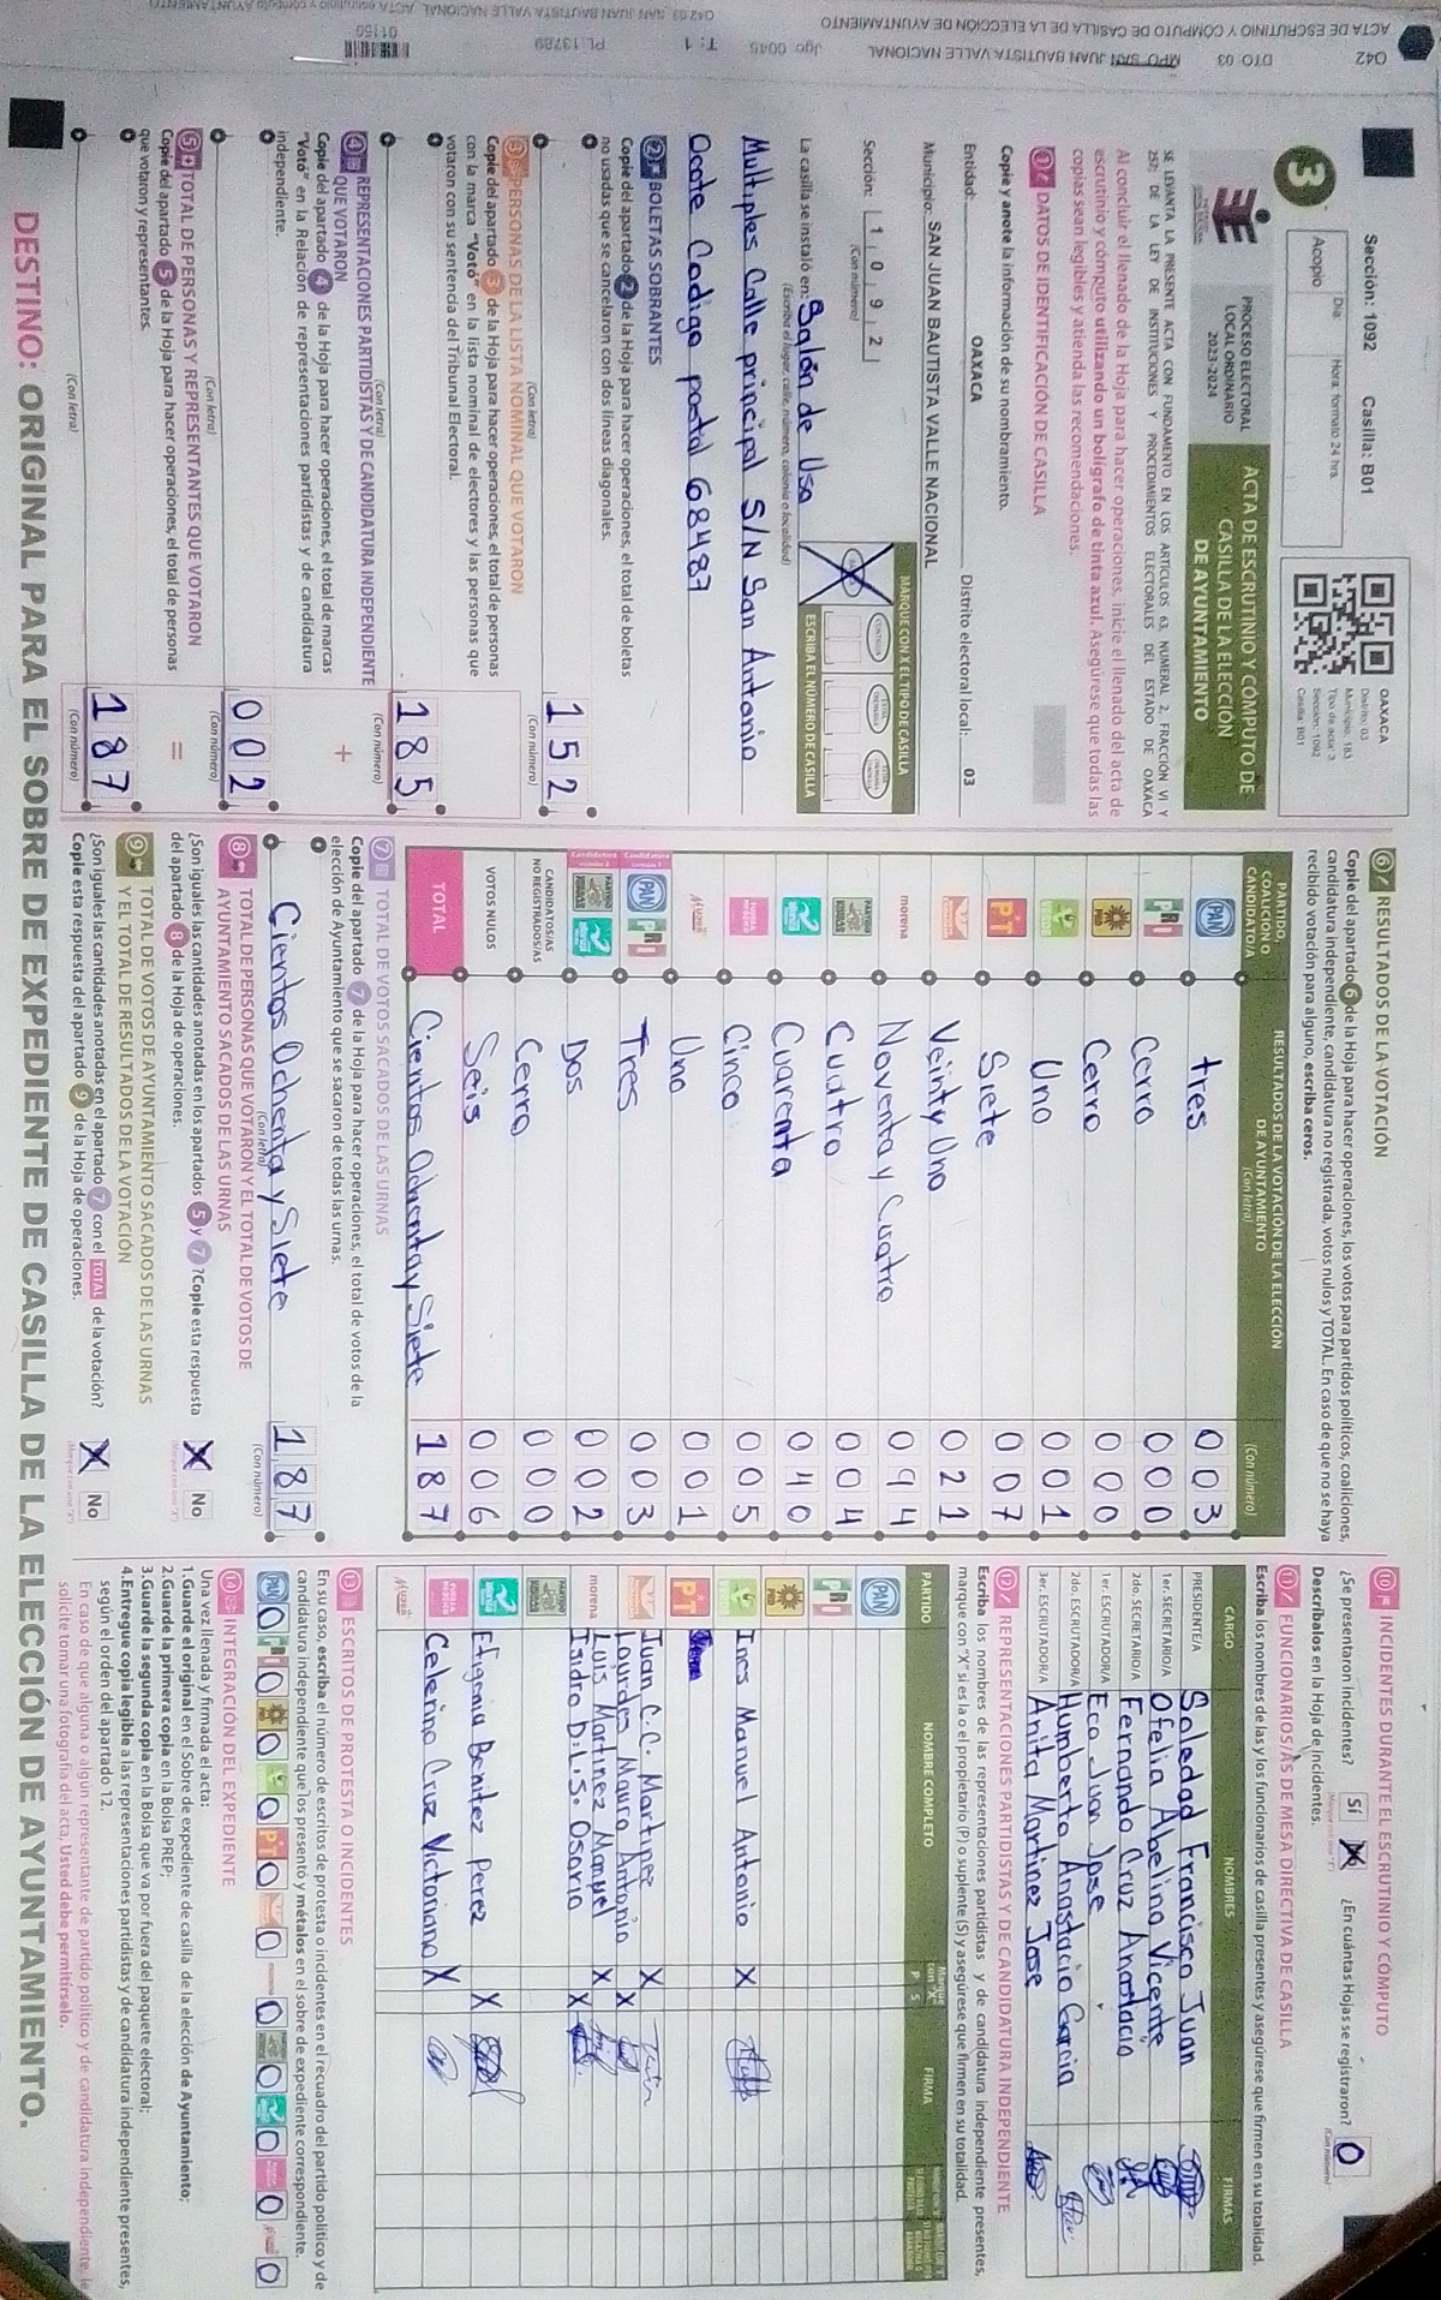 042 DTO: 03 MPO: SAN JUAN BAUTISTA VALLE NACIONAL Jgo: 0045 T: 1 PL: 13789 01150
ACTA DE ESCRUTINIO Y CÓMPUTO DE CASILLA DE LA ELECCIÓN DE AYUNTAMIENTO
Sección: 1092 Casilla: B01
Día: Hora, formato 24 hrs.
Acopio
OAXACA
Distrito: 03
Municipio: 183
Tipo de acta: 3
Sección: 1092
Casilla: B01
3
PROCESO ELECTORAL
LOCAL ORDINARIO
2023-2024
ACTA DE ESCRUTINIO Y CÓMPUTO DE
CASILLA DE LA ELECCIÓN
DE AYUNTAMIENTO
SE LEVANTA LA PRESENTE ACTA CON FUNDAMENTO EN LOS ARTÍCULOS 63, NUMERAL 2, FRACCIÓN VI Y
257; DE LA LEY DE INSTITUCIONES Y PROCEDIMIENTOS ELECTORALES DEL ESTADO DE OAXACA
Al concluir el llenado de la Hoja para hacer operaciones, inicie el llenado del acta de
escrutinio y cómputo utilizando un bolígrafo de tinta azul. Asegúrese que todas las
copias sean legibles y atienda las recomendaciones.
1 DATOS DE IDENTIFICACIÓN DE CASILLA
Copie y anote la información de su nombramiento.
Entidad: OAXACA Distrito electoral local: 03
Municipio: SAN JUAN BAUTISTA VALLE NACIONAL
Sección: 1 0 9 2
(Con número)
MARQUE CON X EL TIPO DE CASILLA
ESCRIBA EL NÚMERO DE CASILLA
La casilla se instaló en: Salón de Uso
(Escriba el lugar, calle, número, colonia o localidad)
Multiples Calle principal S/N San Antonio
Ocote Codigo postal 68487
2 BOLETAS SOBRANTES
Copie del apartado 2 de la Hoja para hacer operaciones, el total de boletas
no usadas que se cancelaron con dos líneas diagonales.
152
(Con letra) (Con número)
3 PERSONAS DE LA LISTA NOMINAL QUE VOTARON
Copie del apartado 3 de la Hoja para hacer operaciones, el total de personas
con la marca "Votó" en la lista nominal de electores y las personas que
votaron con su sentencia del Tribunal Electoral.
185
(Con letra) (Con número)
4 REPRESENTACIONES PARTIDISTAS Y DE CANDIDATURA INDEPENDIENTE
QUE VOTARON +
Copie del apartado 4 de la Hoja para hacer operaciones, el total de marcas
"Votó" en la Relación de representaciones partidistas y de candidatura
independiente.
002
(Con letra) (Con número)
5 TOTAL DE PERSONAS Y REPRESENTANTES QUE VOTARON =
Copie del apartado 5 de la Hoja para hacer operaciones, el total de personas
que votaron y representantes.
187
(Con letra) (Con número)
6 RESULTADOS DE LA VOTACIÓN
Copie del apartado 6 de la Hoja para hacer operaciones, los votos para partidos políticos, coaliciones,
candidatura independiente, candidatura no registrada, votos nulos y TOTAL. En caso de que no se haya
recibido votación para alguno, escriba ceros.
PARTIDO, COALICIÓN O CANDIDATO/A
RESULTADOS DE LA VOTACIÓN DE LA ELECCIÓN
DE AYUNTAMIENTO
(Con letra) (Con número)
PAN tres 003
PRI Cerro 000
PRD Cerro 000
VERDE Uno 001
PT Siete 007
Veinty Uno 021
morena Noventa y Cuatro 094
Cuatro 004
Cuarenta 040
FUERZA MÉXICO Cinco 005
MUJER Uno 001
PAN PRI Tres 003
Dos 002
CANDIDATOS/AS
NO REGISTRADOS/AS Cerro 000
VOTOS NULOS Seis 006
TOTAL Cientos Ochentay Siete 187
7 TOTAL DE VOTOS SACADOS DE LAS URNAS
Copie del apartado 7 de la Hoja para hacer operaciones, el total de votos de la
elección de Ayuntamiento que se sacaron de todas las urnas.
Cientos Ochenta y Siete 187
(Con letra) (Con número)
8 TOTAL DE PERSONAS QUE VOTARON Y EL TOTAL DE VOTOS DE
AYUNTAMIENTO SACADOS DE LAS URNAS
¿Son iguales las cantidades anotadas en los apartados 5 y 7? Copie esta respuesta
del apartado 8 de la Hoja de operaciones. X No
9 TOTAL DE VOTOS DE AYUNTAMIENTO SACADOS DE LAS URNAS
Y EL TOTAL DE RESULTADOS DE LA VOTACIÓN
¿Son iguales las cantidades anotadas en el apartado 7 con el TOTAL de la votación?
Copie esta respuesta del apartado 9 de la Hoja de operaciones. X No
10 INCIDENTES DURANTE EL ESCRUTINIO Y CÓMPUTO
¿Se presentaron incidentes? Sí X ¿En cuántas Hojas se registraron? 0
Descríbalos en la Hoja de incidentes.
11 FUNCIONARIOS/AS DE MESA DIRECTIVA DE CASILLA
Escriba los nombres de las y los funcionarios de casilla presentes y asegúrese que firmen en su totalidad.
CARGO NOMBRES FIRMAS
PRESIDENTE/A Soledad Francisco Juan
1er. SECRETARIO/A Ofelia Abelino Vicente
2do. SECRETARIO/A Fernando Cruz Anastacio
1er. ESCRUTADOR/A Eco Juan Jose
2do. ESCRUTADOR/A Humberto Anastacio Garcia
3er. ESCRUTADOR/A Anita Martinez Jose
12 REPRESENTACIONES PARTIDISTAS Y DE CANDIDATURA INDEPENDIENTE
Escriba los nombres de las representaciones partidistas y de candidatura independiente presentes,
marque con "X" si es la o el propietario (P) o suplente (S) y asegúrese que firmen en su totalidad.
PARTIDO NOMBRE COMPLETO Marque con "X" P S FIRMA
PAN
PRI
PRD
VERDE Ines Manuel Antonio X
PT
Juan C.C. Martinez X
Lourdes Mauro Antonio X
morena Luis Martinez Manuel X
Isidro D.L.S. Osorio X
Efigenia Benitez Perez X
FUERZA MÉXICO Celerino Cruz Victoriano X
MUJER
13 ESCRITOS DE PROTESTA O INCIDENTES
En su caso, escriba el número de escritos de protesta o incidentes en el recuadro del partido político y de
candidatura independiente que los presentó y métalos en el sobre de expediente correspondiente.
PAN 0 PRI 0 PRD 0 0 PT 0 0 0 0 0 0 0
14 INTEGRACIÓN DEL EXPEDIENTE
Una vez llenada y firmada el acta:
1.Guarde el original en el Sobre de expediente de casilla de la elección de Ayuntamiento;
2.Guarde la primera copia en la Bolsa PREP;
3.Guarde la segunda copia en la Bolsa que va por fuera del paquete electoral;
4.Entregue copia legible a las representaciones partidistas y de candidatura independiente presentes,
según el orden del apartado 12.
En caso de que alguna o algún representante de partido político y de candidatura independiente, le
solicite tomar una fotografía del acta, Usted debe permitírselo.
DESTINO: ORIGINAL PARA EL SOBRE DE EXPEDIENTE DE CASILLA DE LA ELECCIÓN DE AYUNTAMIENTO.